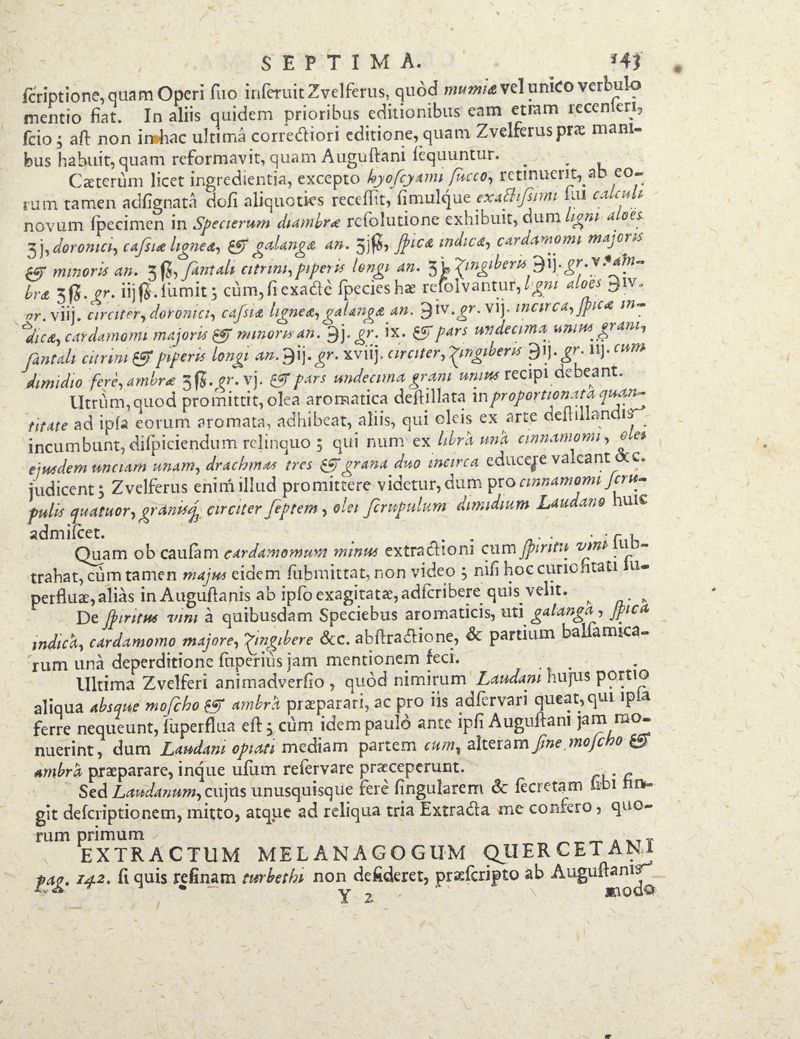 SEPTIMA. 143
ſcriptione, quam Operi ſuo inſeruit Zvelferus, quòd mumiæ vel unico verbulo
mentio fiat. In aliis quidem prioribus editionibus eam etiam recenſeri,
ſcio; aſt non in hac ultimâ correctiori editione, quam Zvelferus præ mani-
bus habuit, quam reformavit, quam Auguſtani ſequuntur.
Cæterùm licet ingredientia, excepto hyoſcyami ſucco, retinuerit, ab eo-
rum tamen adſignatâ doſi aliquoties receſſit, ſimulque exactiſsimi ſui calculi
novum ſpecimen in Specierum diambræ reſolutione exhibuit, dum ligni aloës
ʒj, doronici, caſsiæ ligneæ, & galangæ an. ʒjß, ſpicæ indicæ, cardamomi majoris
& minoris an. ʒß, ſantali citrini, piperis longi an. ʒj, zingiberis ℈ij. gr. v. am-
bræ ʒß. gr. iijß. ſumit; cùm, ſi exactè ſpecies hæ reſolvantur, ligni aloës ℈iv.
gr. viij. circiter, doronici, caſsiæ ligneæ, galangæ an. ℈iv. gr. vij. incirca, ſpicæ in-
dicæ, cardamomi majoris & minoris an. ℈j. gr. ix. & pars undecima unius grani,
ſantali citrini & piperis longi an. ℈ij. gr. xviij. circiter, zingiberis ℈ij. gr. iij. cum
dimidio ferè, ambræ ʒß. gr. vj. & pars undecima grani unius recipi debeant.
Utrùm, quod promittit, olea aromatica deſtillata in proportionatâ quan-
titate ad ipſa eorum aromata, adhibeat, aliis, qui oleis ex arte deſtillandis
incumbunt, diſpiciendum relinquo; qui num ex librâ unâ cinnamomi, olei
ejusdem unciam unam, drachmas tres & grana duo incirca educere valeant &c.
judicent; Zvelferus enim illud promittere videtur, dum pro cinnamomi ſcru-
pulis quatuor, granisq; circiter ſeptem, olei ſcrupulum dimidium Laudano huic
admiſcet.
Quam ob cauſam cardamomum minus extractioni cum ſpiritu vini ſub-
trahat, cùm tamen majus eidem ſubmittat, non video; niſi hoc curioſitati ſu-
perfluæ, aliàs in Auguſtanis ab ipſo exagitatæ, adſcribere quis velit.
De ſpiritus vini à quibusdam Speciebus aromaticis, uti galangâ, ſpicâ
indicâ, cardamomo majore, zingibere &c. abſtractione, & partium balſamica-
rum unà deperditione ſuperiùs jam mentionem feci.
Ultima Zvelferi animadverſio, quòd nimirum Laudani hujus portio
aliqua absque moſcho & ambrâ præparari, ac pro iis adſervari queat, qui ipſa
ferre nequeunt, ſuperflua eſt; cùm idem paulò ante ipſi Auguſtani jam mo-
nuerint, dum Laudani opiati mediam partem cum, alteram ſine moſcho &
ambrâ præparare, inque uſum reſervare præceperunt.
Sed Laudanum, cujus unusquisque ferè ſingularem & ſecretam ſibi fin-
git deſcriptionem, mitto, atque ad reliqua tria Extracta me confero, quo-
rum primum
EXTRACTUM MELANAGOGUM QUERCETANI
pag. 142. ſi quis reſinam turbethi non deſideret, præſcripto ab Auguſtanis
Y 2 modo